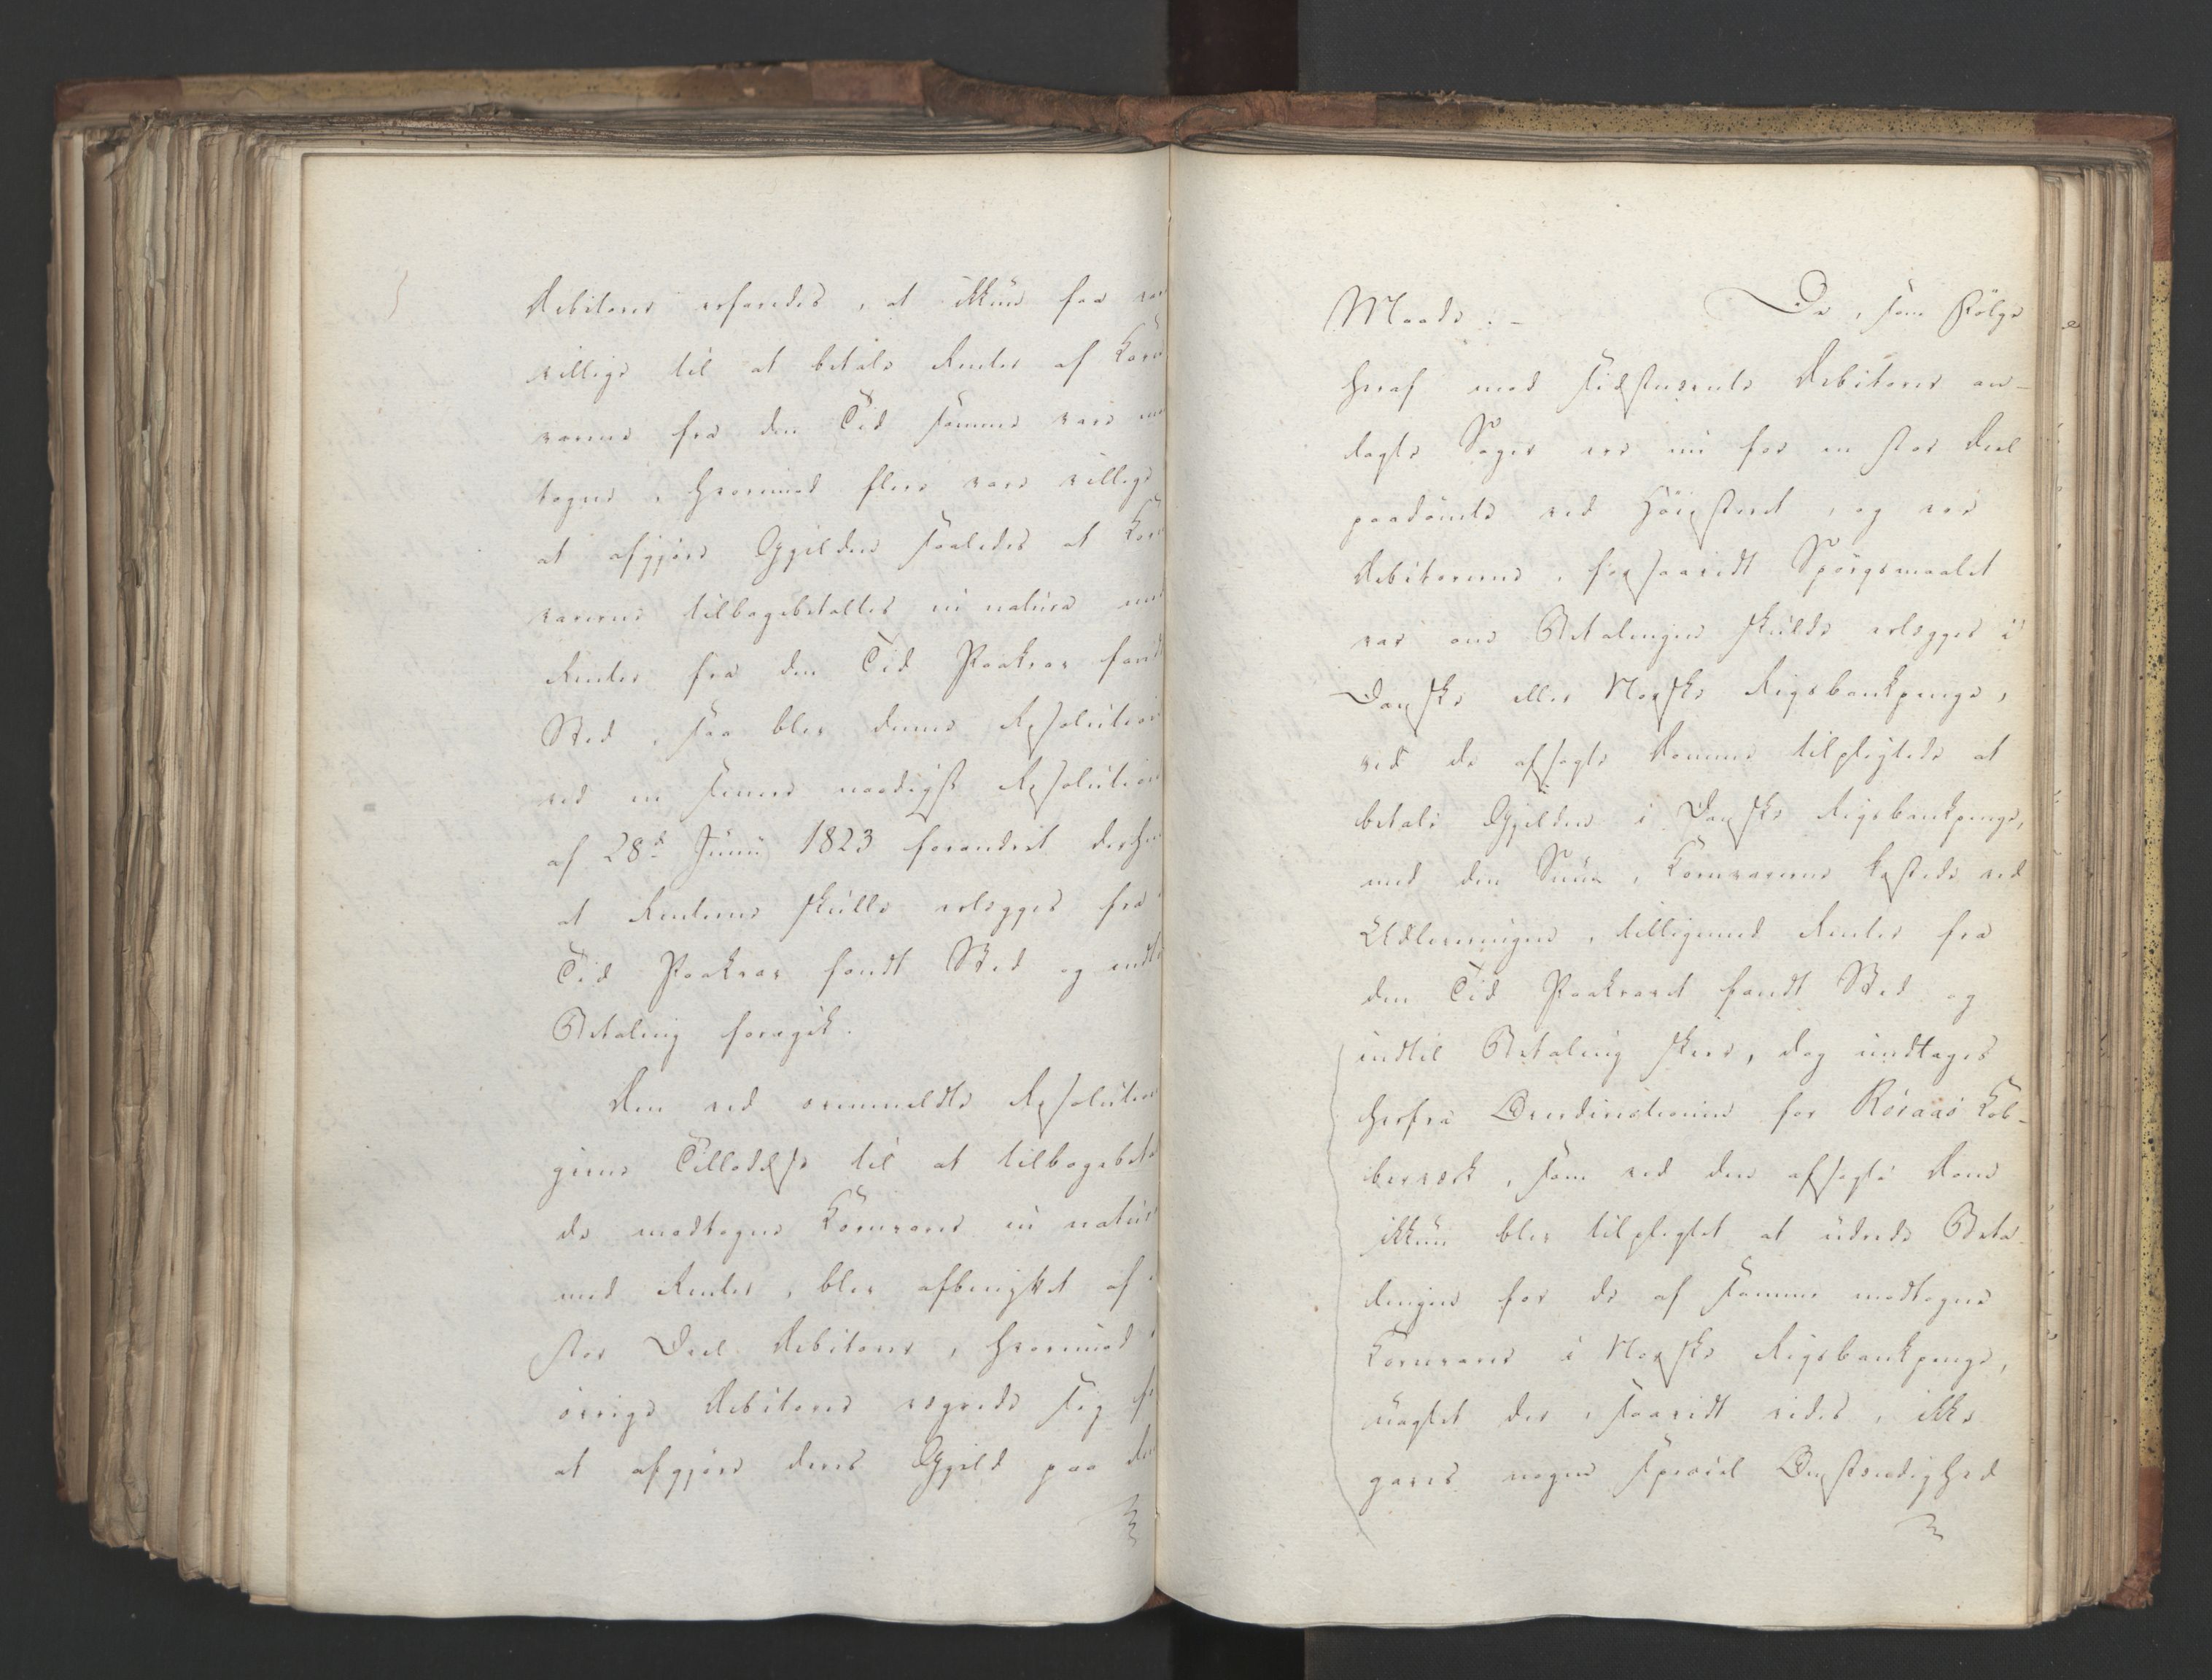 Debitorer erfaredes, at ikkun faa var
villige til at betale Renter af Korn
varerne fra den Tid samme vare mod
tagne, hvorimod flere vare villige
at afgjøre Gjelden saaledes at Korn
varerne tilbagebetaltes in natura med
Renter fra den Tid Paakrav fandt
Sted, saa blev denne Resolution
ved en senere naadigst Resolution
af 28d Junii 1823 forandret derhen
at Renterne skulle erlægges fra
Tid Paakrav fandt Sted og indtil
Betaling foregik.
Den ved ommeldte Resolution
givne Tilladelse til at tilbagebeta
de modtagne Kornvarer in natura
med Renter, blev afbenyttet af
stor Deel Debitorer, hvorimod
øvrige Debitorer vægrede sig
at afgjøre deres Gjeld paa den
Maade. - De, som Følge
heraf mod sidstnævnte Debitorer an-
lagte Sager ere nu for en stor Deel
paadømte ved Høiesteret, og ere
Debitorerne, forsaavidt Spørgsmaalet
var om Betalingen skulde erlægges i
Danske eller Norske Rigsbankpenge,
ved de afsagte Domme tilpligtede at
betale Gjelden i Danske Rigsbankpenge,
med den Sum, Kornvarerne kostede ved
Udleveringen, tilligemed Renter fra
den Tid Paakravet fandt Sted og
indtil Betaling skeer, dog undtages
herfra Directionen for Röraas Kob-
berværk, som ved den afsagte Dom
ikkun blev tilpligtet at udrede Beta-
lingen for de af samme modtagne
Kornvarer i Norske Rigsbankpenge,
uagtet der, saavidt vides, ikke
gaves nogen speciel Omstændighed